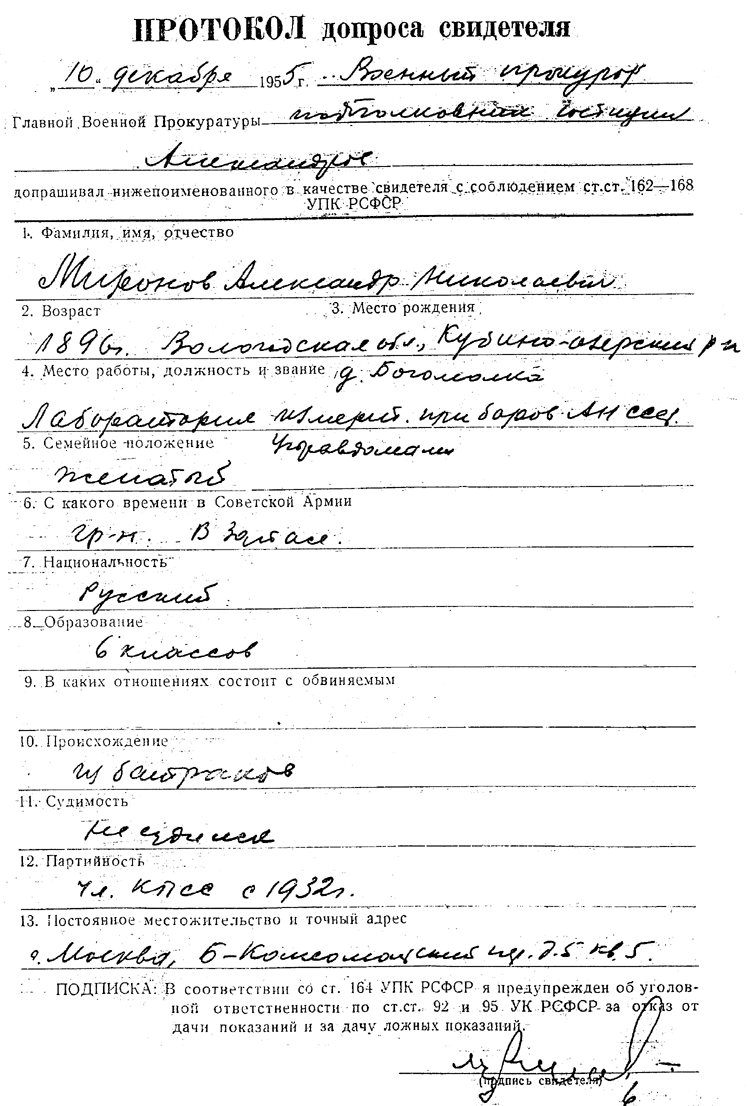 ПРОТОКОЛ допроса свидетеля
„10„ декабря 1955г. Военный прокурор
Главной Военной Прокуратуры подполковник юстиции
Александров
допрашивал нижепоименованного в качестве свидетеля с соблюдением ст.ст. 162—168
УПК РСФСР
1. Фамилия, имя, отчество
Миронов Александр Николаевич
2. Возраст 3. Место рождения
1896г. Вологодская обл., Кубино-озерский р-н
4. Место работы, должность и звание д. Богомолка
Лаборатория измерит. приборов АН СССР.
5. Семейное положение Управдомами
женатый
6. С какого времени в Советской Армии
гр-н. В запасе.
7. Национальность
Русский
8. Образование
6 классов
9. В каких отношениях состоит с обвиняемым
10. Происхождение
из батраков
11. Судимость
Не судился
12. Партийность
чл. КПСС с 1932г.
13. Постоянное местожительство и точный адрес
г. Москва, Б-Комсомольский пер. д.5 кв 5.
ПОДПИСКА: В соответствии со ст. 164 УПК РСФСР я предупрежден об уголов-
ной ответственности по ст.ст. 92 и 95 УК РСФСР за отказ от
дачи показаний и за дачу ложных показаний.
(подпись свидетеля)
6